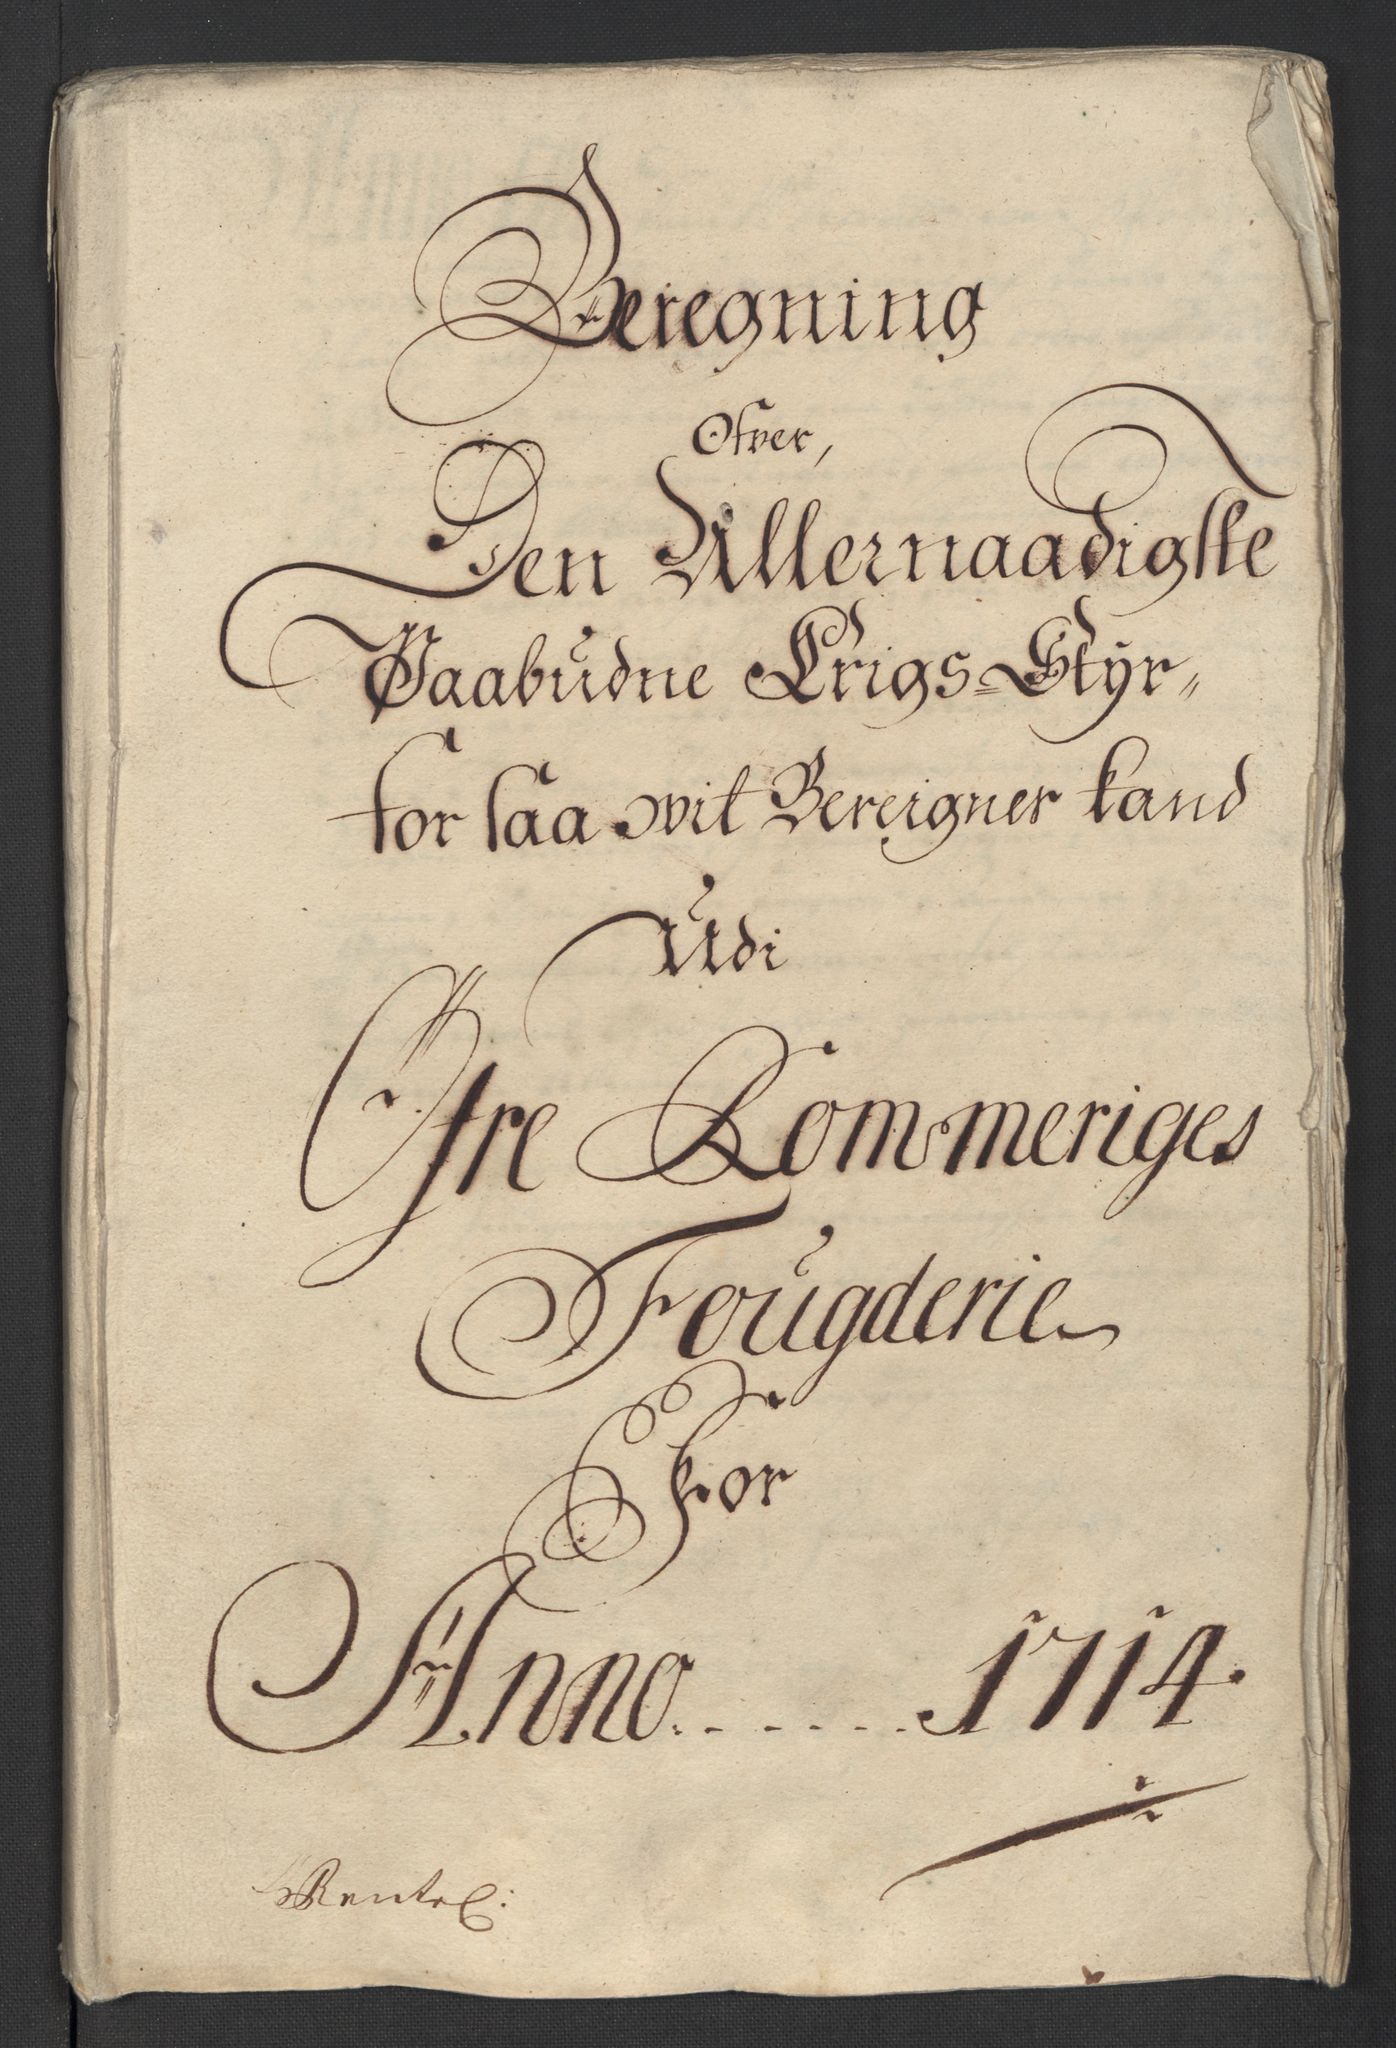 Beregning
Ofver,
Den Allernaadigste
Paabudne Crigs=Styr„
for saa wit Bereigner kand
Udi
Yfre Rommeriges
Fougderie
For
Anno....... 1714.
Rentec: